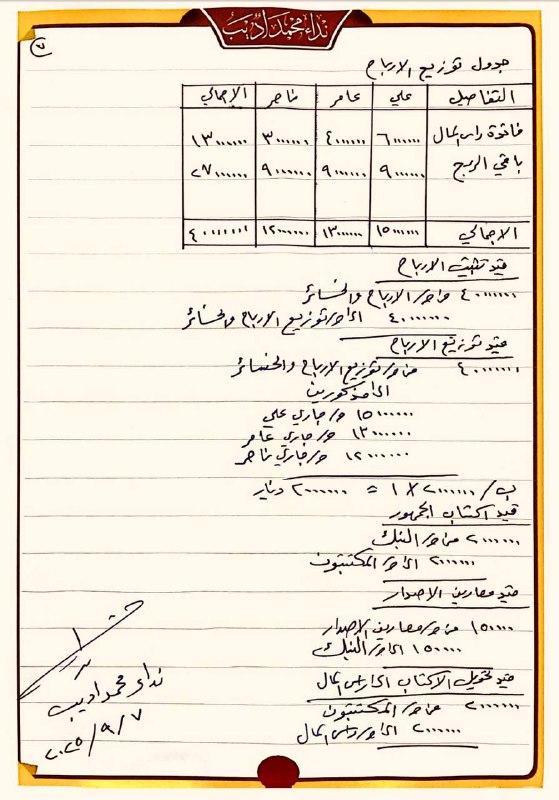 نداء محمد اديب
٧
جدول توزيع الارباح
التفاصيل علي عامر ناصر الإجمالي
فائدة راس المال ٦٠٠٠٠٠٠ ٤٠٠٠٠٠٠ ٣٠٠٠٠٠٠ ١٣٠٠٠٠٠٠
باقي الربح ٩٠٠٠٠٠٠ ٩٠٠٠٠٠٠ ٩٠٠٠٠٠٠ ٢٧٠٠٠٠٠٠
الاجمالي ١٥٠٠٠٠٠٠ ١٣٠٠٠٠٠٠ ١٢٠٠٠٠٠٠ ٤٠٠٠٠٠٠٠
قيد تثبيت الارباح
٤٠٠٠٠٠٠٠ من حـ/ الارباح والخسائر
٤٠٠٠٠٠٠٠ الى حـ/ توزيع الارباح والخسائر
قيد توزيع الارباح
٤٠٠٠٠٠٠٠ من حـ/ توزيع الارباح والخسائر
الى مذكورين
١٥٠٠٠٠٠٠ حـ/ جاري علي
١٣٠٠٠٠٠٠ حـ/ جاري عامر
١٢٠٠٠٠٠٠ حـ/ جاري ناصر
ب/ ٢٠٠٠٠٠٠ × ١ = ٢٠٠٠٠٠٠ دينار
قيد اكتتاب الجمهور
٢٠٠٠٠٠٠ من حـ/ البنك
٢٠٠٠٠٠٠ الى حـ/ المكتتبون
قيد مصاريف الاصدار
١٥٠٠٠٠ من حـ/ مصاريف الاصدار
١٥٠٠٠٠ الى حـ/ البنك
قيد تحويل الاكتتاب الى راس المال
٢٠٠٠٠٠٠ من حـ/ المكتتبون
٢٠٠٠٠٠٠ الى حـ/ راس المال
نداء محمد اديب
٢٠٢٥/٩/٧